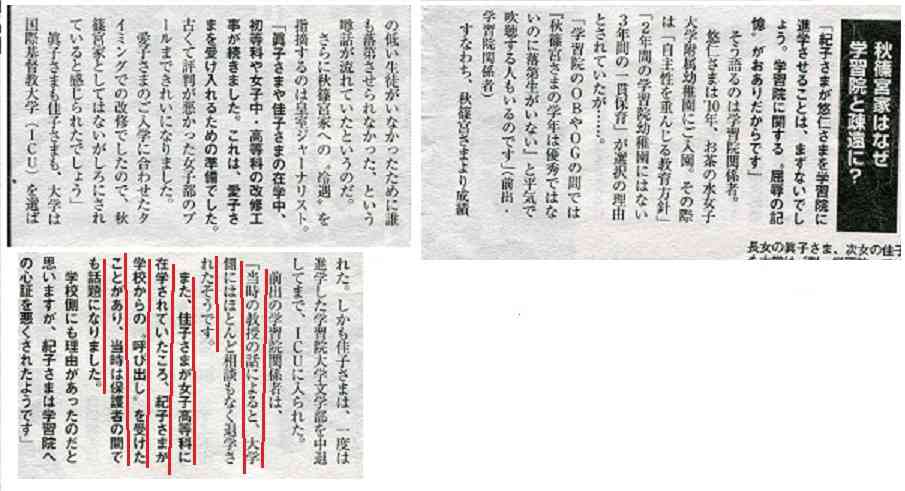 秋篠宮家はなぜ
学習院と疎遠に?
「紀子さまが悠仁さまを学習院に
進学させることは、まずないでし
ょう。学習院に関する〝屈辱の記
憶〟がおありだからです」
そう語るのは学習院関係者。
悠仁さまは'10年、お茶の水女子
大学附属幼稚園にご入園。その際
は「自主性を重んじる教育方針」
「2年間の学習院幼稚園にはない
3年間の一貫保育」が選択の理由
とされていたが……。
「学習院のOBやOGの間では
『秋篠宮さまの学年は優秀ではな
いのに落第生がいない』と平気で
吹聴する人もいるのです」(前出・
学習院関係者)
すなわち、秋篠宮さまより成績
長女の眞子さま、次女の佳子
の低い生徒がいなかったために誰
も落第させられなかった、という
噂話が流れていたというのだ。
さらに秋篠宮家への〝冷遇〟を
指摘するのは皇室ジャーナリスト。
「眞子さまや佳子さまの在学中、
初等科や女子中・高等科の改修工
事が続きました。これは、愛子さ
まを受け入れるための準備でした。
古くて評判が悪かった女子部のプ
ールまできれいになりました。
愛子さまのご入学に合わせたタ
イミングでの改修でしたので、秋
篠宮家としてはないがしろにされ
ていると感じられたでしょう」
眞子さまも佳子さまも、大学は
国際基督教大学(ICU)を選ば
れた。しかも佳子さまは、一度は
進学した学習院大学文学部を中退
してまで、ICUに入られた。
前出の学習院関係者は、
「当時の教授の話によると、大学
側にはほとんど相談もなく退学さ
れたそうです。
また、佳子さまが女子高等科に
在学されていたころ、紀子さまが
学校からの〝呼び出し〟を受けた
ことがあり、当時は保護者の間で
も話題になりました。
学校側にも理由があったのだと
思いますが、紀子さまは学習院へ
の心証を悪くされたようです」